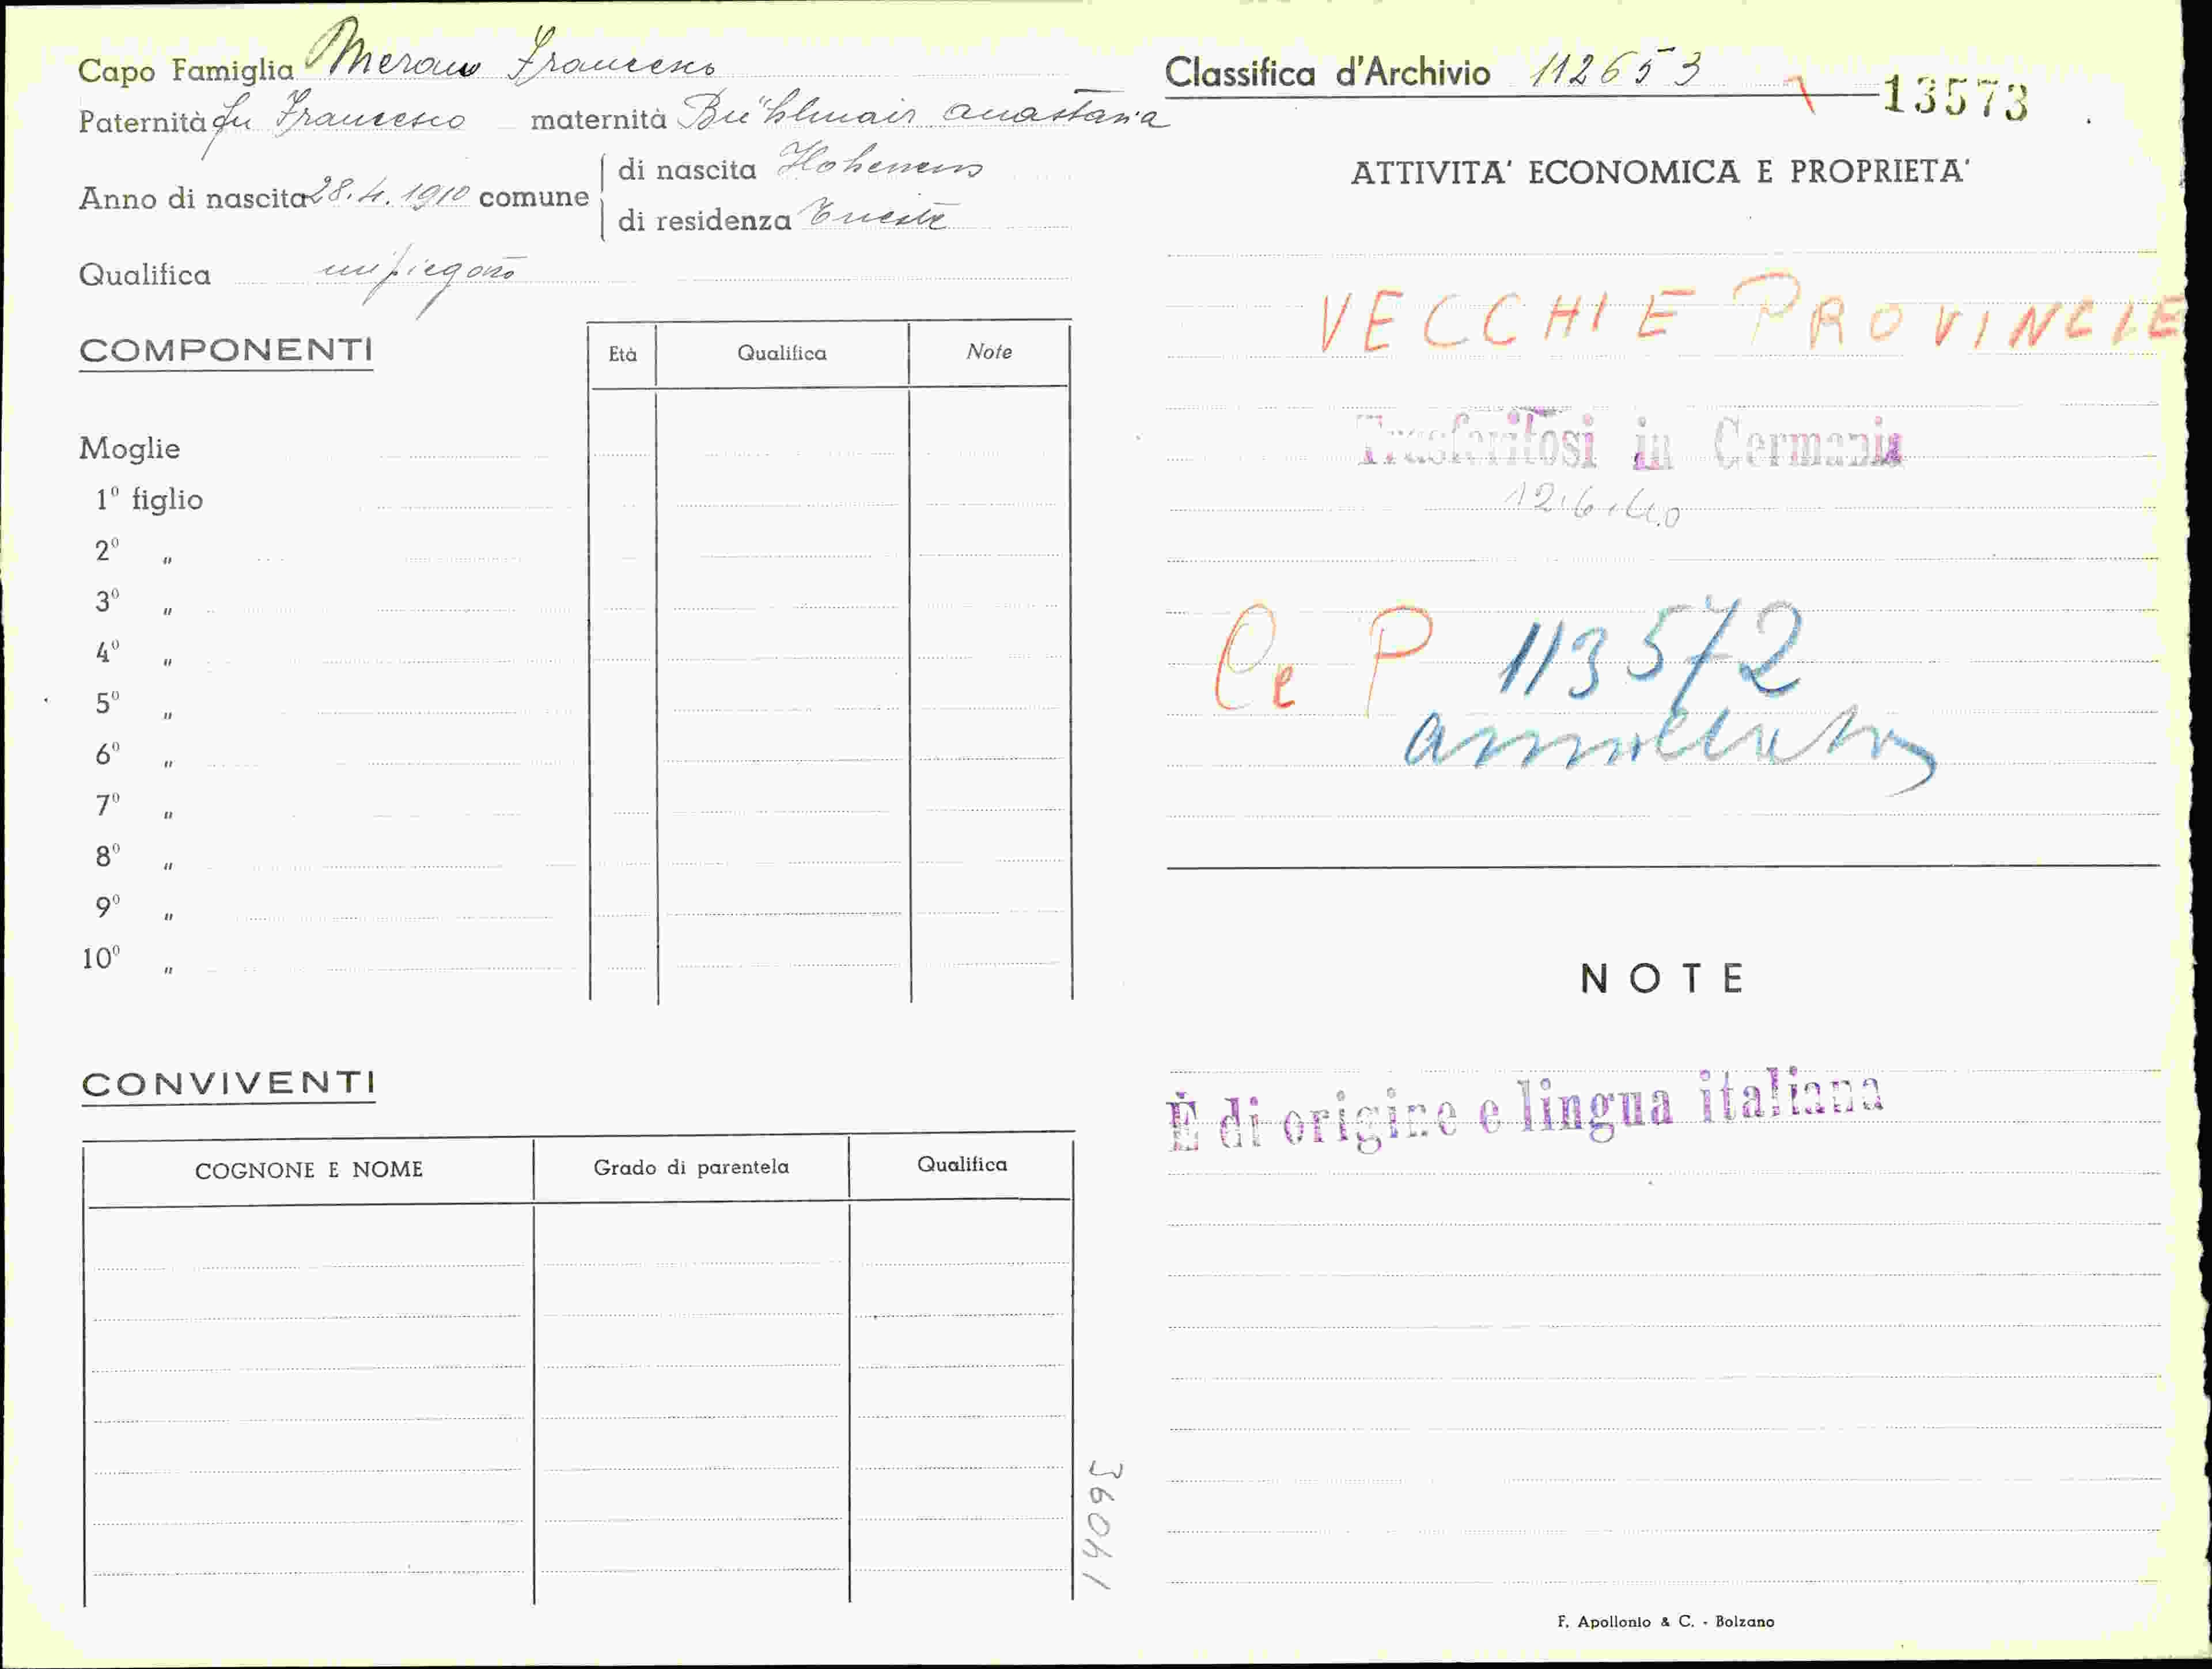 Capo Famiglia Merano Francesco
Paternità fu Francesco maternità Bühlmair Anastasia
Anno di nascita 28.4.1910 comune
di nascita Hohenems
di residenza Trieste
Qualifica impiegato
COMPONENTI
Età Qualifica Note
Moglie
1º figlio
2º "
3º "
4º "
5º "
6º "
7º "
8º "
9º "
10º "
CONVIVENTI
COGNONE E NOME Grado di parentela Qualifica
36041
Classifica d'Archivio 112653
13573
ATTIVITA' ECONOMICA E PROPRIETA'
VECCHIE PROVINCIE
Trasferitosi in Germania
12.6.40
Ce P 113572
annullato
NOTE
È di origine e lingua italiana
F. Apollonio & C. - Bolzano